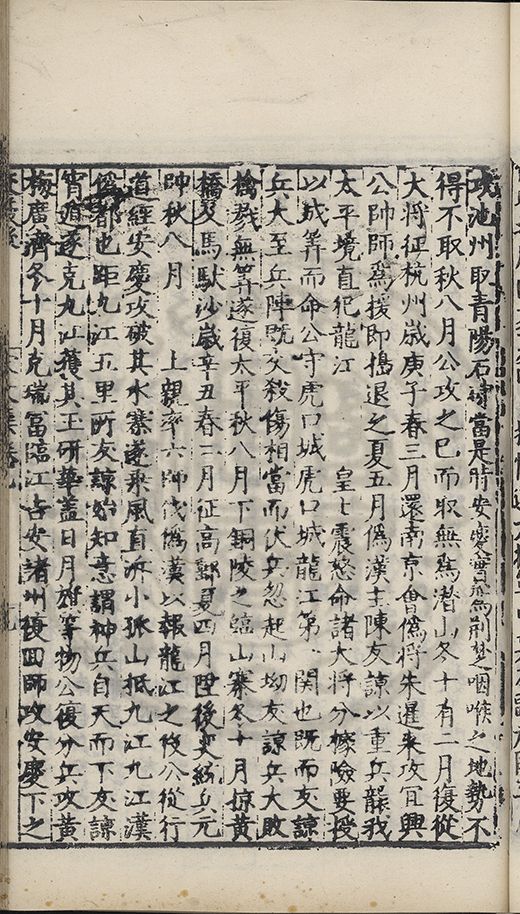 攻池州取青陽石埭當是時安慶實為荆楚咽喉之地勢不
得不取秋八月公攻之已而取無為潛山冬十有二月復從
大将征杭州歲庚子春三月還南京會偽将朱暹来攻冝興
公帥師為援即搗退之夏五月偽漢主陳友諒以重兵襲我
太平境直犯龍江 皇上震怒命諸大将分據險要授
以成筭而命公守虎口城虎口城龍江第一関也既而友諒
兵大至兵陣既交殺傷相當而伏兵忽起山坳友諒兵大敗
擒戮無筭遂復太平秋八月下銅陵之臨山寨冬十月掠黄
橋又馬馱沙歲辛丑春二月征高郵夏四月陞後翼綂兵元
帥秋八月 上親率六師伐偽漢以報龍江之役公從行
道經安慶攻破其水寨遂乘風直泝小孤山抵九江九江漢
偽都也距九江五里所友諒始知意謂神兵自天而下友諒
宵遁遂克九江獲其玉硏華盖日月旗等物公復分兵攻黄
梅廣濟冬十月克瑞冨臨江吉安諸州復回師攻安慶下之